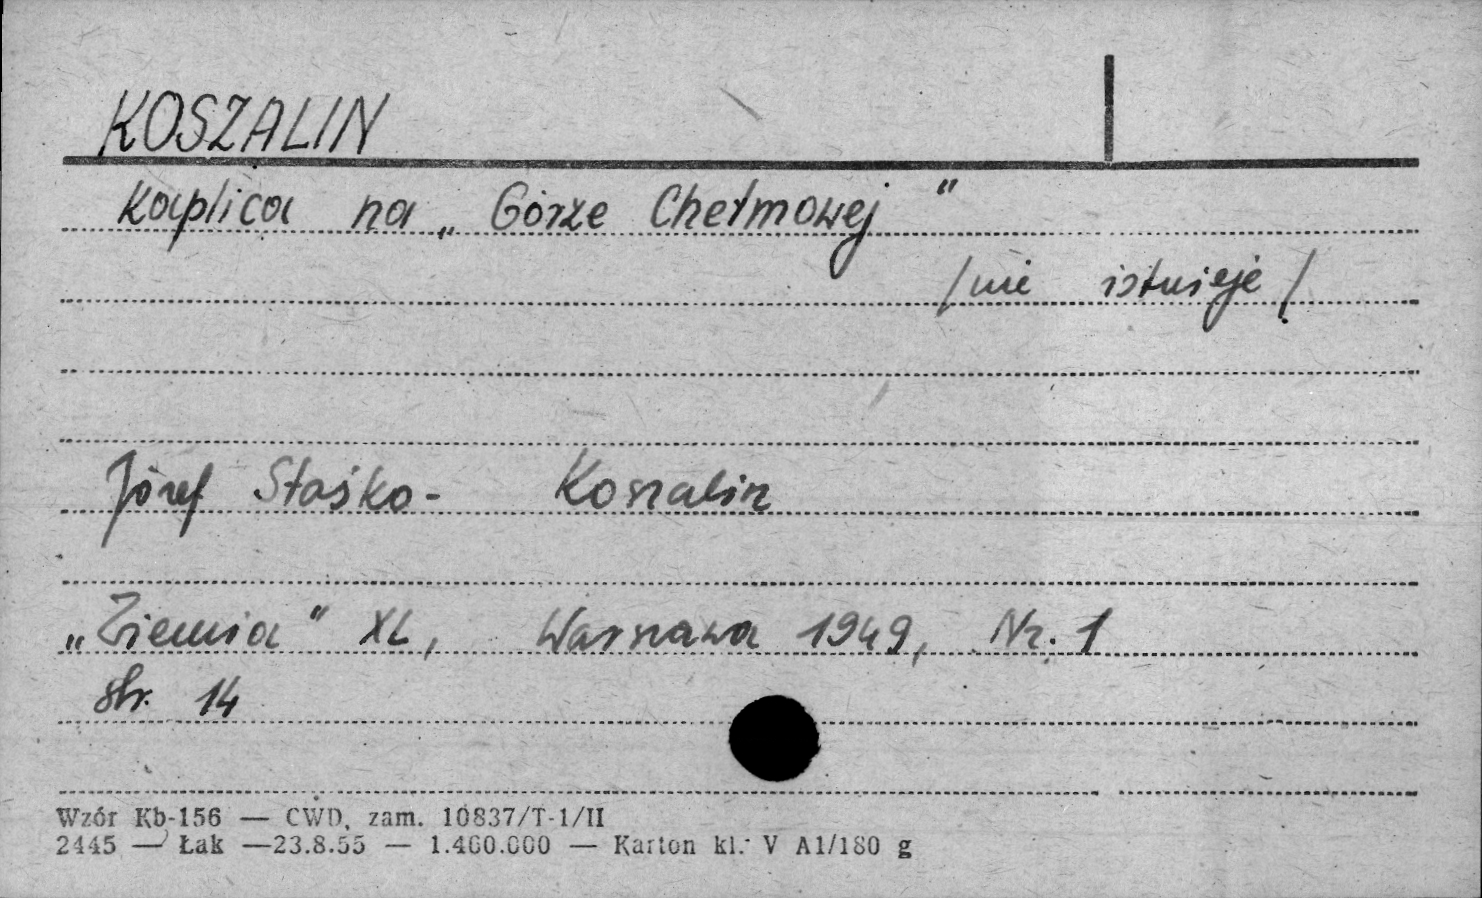 KOSZALIN
Kaplica na „Górze Chełmowej"
/nie istnieje/
Józef Staśko - Koszalin
„Ziemia" XL, Warszawa 1949, Nr. 1
str. 14
Wzór Kb-156 — CWD, zam. 10837/T-1/II
2445 — Łak —23.8.55 — 1.400.000 — Karton kl. V A1/180 g